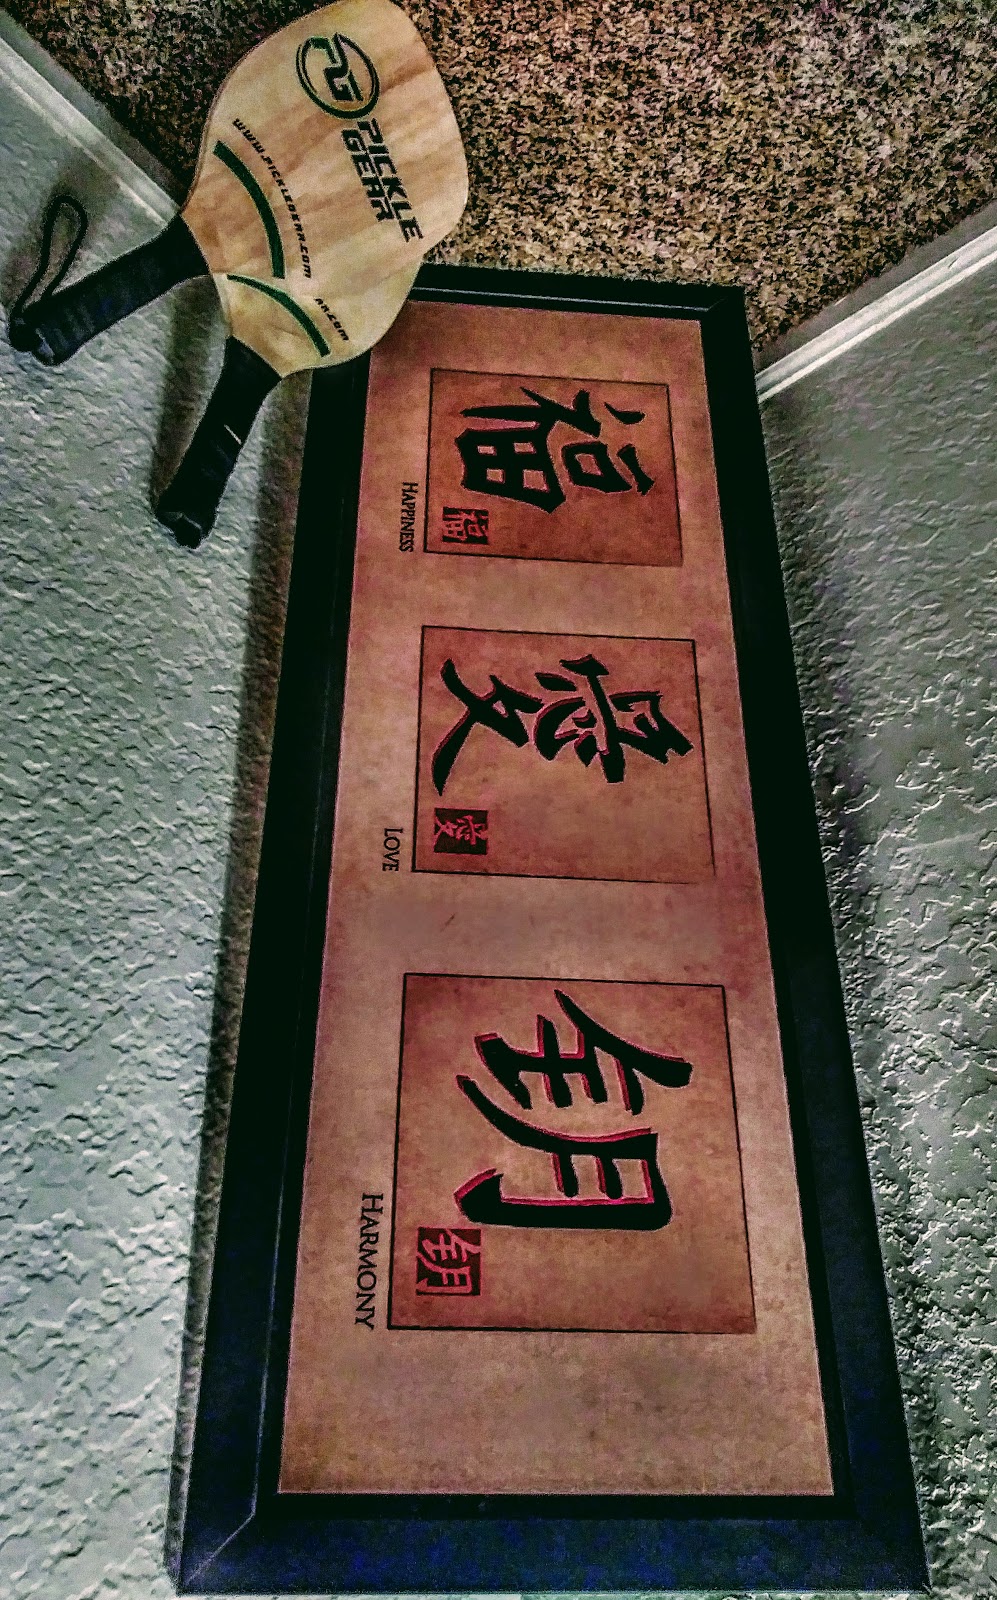 PG
PICKLE
GEAR
WWW.PICKLEGEAR.COM
AR.COM
福
福
HAPPINESS
愛
愛
LOVE
钥
钥
HARMONY